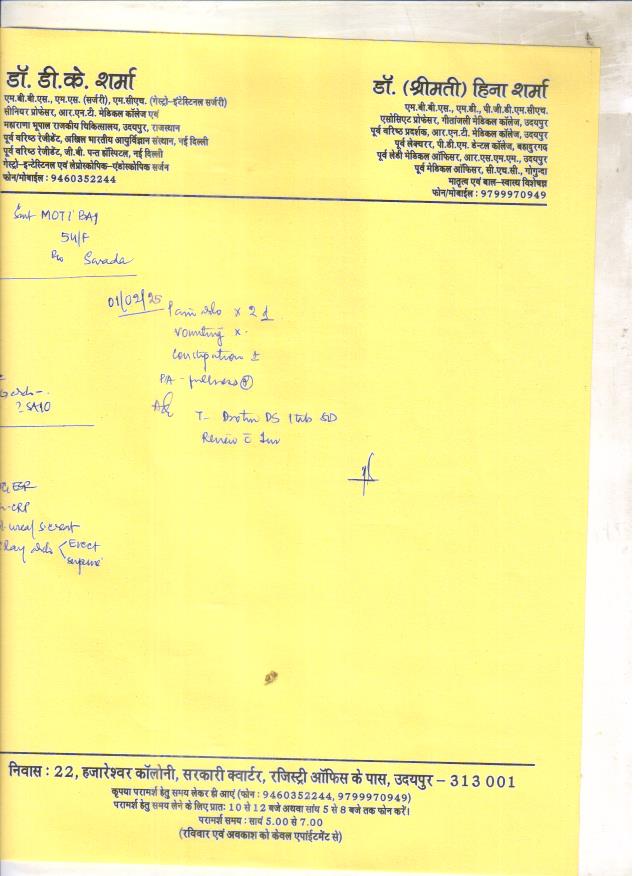 डॉ. डी.के. शर्मा
एम.बी.बी.एस., एम.एस. (सर्जरी), एम.सीएच. (गेस्ट्रो-इंटेस्टिनल सर्जरी)
सीनियर प्रोफेसर, आर.एन.टी. मेडिकल कॉलेज एवं
महाराणा भूपाल राजकीय चिकित्सालय, उदयपुर, राजस्थान
पूर्व वरिष्ठ रेजीडेंट, अखिल भारतीय आयुर्विज्ञान संस्थान, नई दिल्ली
पूर्व वरिष्ठ रेजीडेंट, जी.बी. पन्त हॉस्पिटल, नई दिल्ली
गेस्ट्रो-इन्टेस्टिनल एवं लेप्रोस्कोपिक-एंडोस्कोपिक सर्जन
फोन/मोबाईल : 9460352244
डॉ. (श्रीमती) हिना शर्मा
एम.बी.बी.एस., एम.डी., पी.जी.डी.एम.सीएच.
एसोसिएट प्रोफेसर, गीतांजली मेडिकल कॉलेज, उदयपुर
पूर्व वरिष्ठ प्रदर्शक, आर.एन.टी. मेडिकल कॉलेज, उदयपुर
पूर्व लेक्चरर, पी.डी.एम. डेन्टल कॉलेज, बहादुरगढ़
पूर्व लेडी मेडिकल ऑफिसर, आर.एस.एम.एम., उदयपुर
पूर्व मेडिकल ऑफिसर, सी.एच.सी., गोगुन्दा
मातृत्व एवं बाल-स्वास्थ्य विशेषज्ञ
फोन/मोबाईल : 9799970949
Smt MOTI BAI
54/F
R/o Sarada
01/02/25 Pain abdo x 2 d
Vomiting x
Constipation ±
PA - fullness
T-
DS 1 tab
Review c
ESR
CRP
urea/s.creat
Xray abdo Erect
supine
निवास : 22, हजारेश्वर कॉलोनी, सरकारी क्वार्टर, रजिस्ट्री ऑफिस के पास, उदयपुर – 313 001
कृपया परामर्श हेतु समय लेकर ही आएं (फोन : 9460352244, 9799970949)
परामर्श हेतु समय लेने के लिए प्रातः 10 से 12 बजे अथवा सांय 5 से 8 बजे तक फोन करें।
परामर्श समय : सायं 5.00 से 7.00
(रविवार एवं अवकाश को केवल एपांईटमेंट से)